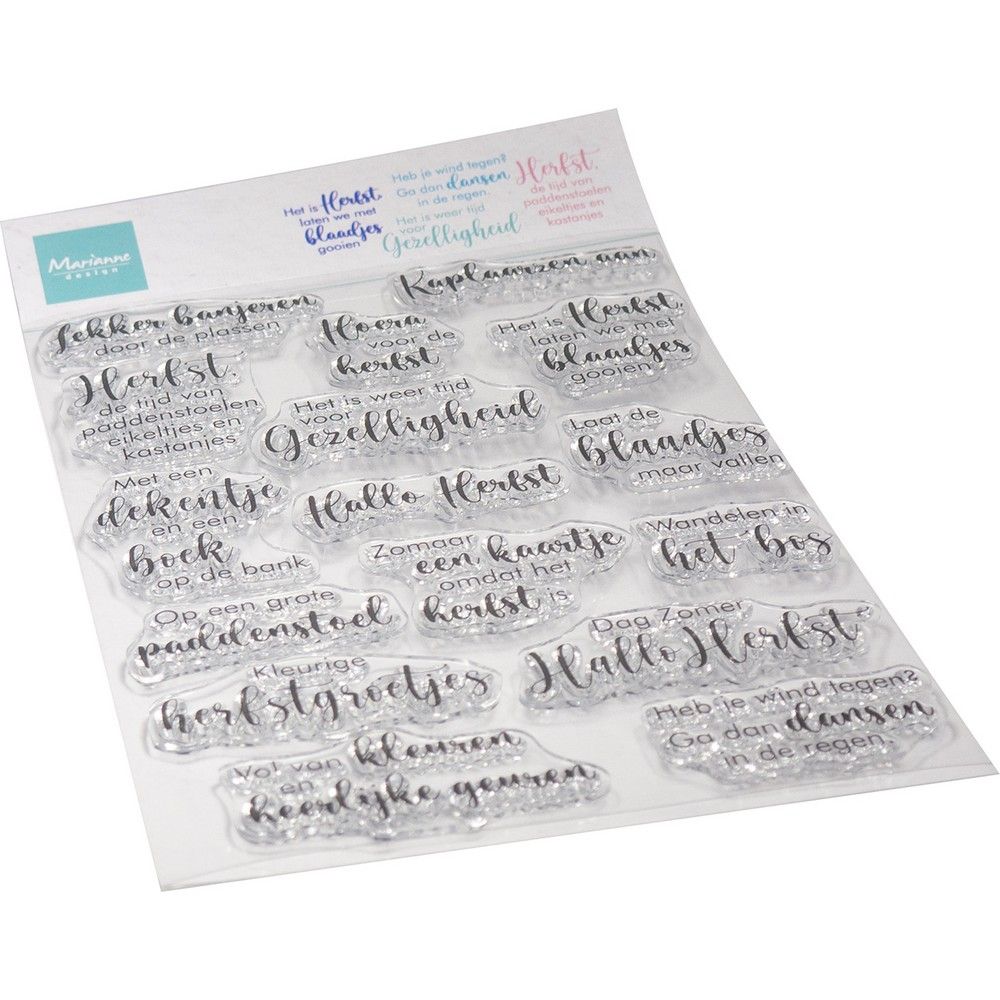 Marianne
design
Het is Herfst,
laten we met
blaadjes
gooien
Heb je wind tegen?
Ga dan dansen
in de regen.
Het is weer tijd
voor
Gezelligheid
Herfst,
de tijd van
paddenstoelen
eikeltjes en
kastanjes
Kaplaarzen aan
Lekker banjeren
door de plassen
Hoera
voor de
herfst
Het is Herfst,
laten we met
blaadjes
gooien
Herfst,
de tijd van
paddenstoelen
eikeltjes en
kastanjes
Het is weer tijd
voor
Gezelligheid
Laat de
blaadjes
maar vallen
Met een
dekentje
en een
boek
op de bank
Hallo Herfst
Zomaar
een kaartje
omdat het
herfst is
Wandelen in
het bos
Op een grote
paddenstoel
Dag Zomer
Hallo Herfst
Kleurige
herfstgroetjes
Heb je wind tegen?
Ga dan dansen
in de regen.
Vol van kleuren
en
heerlijke geuren